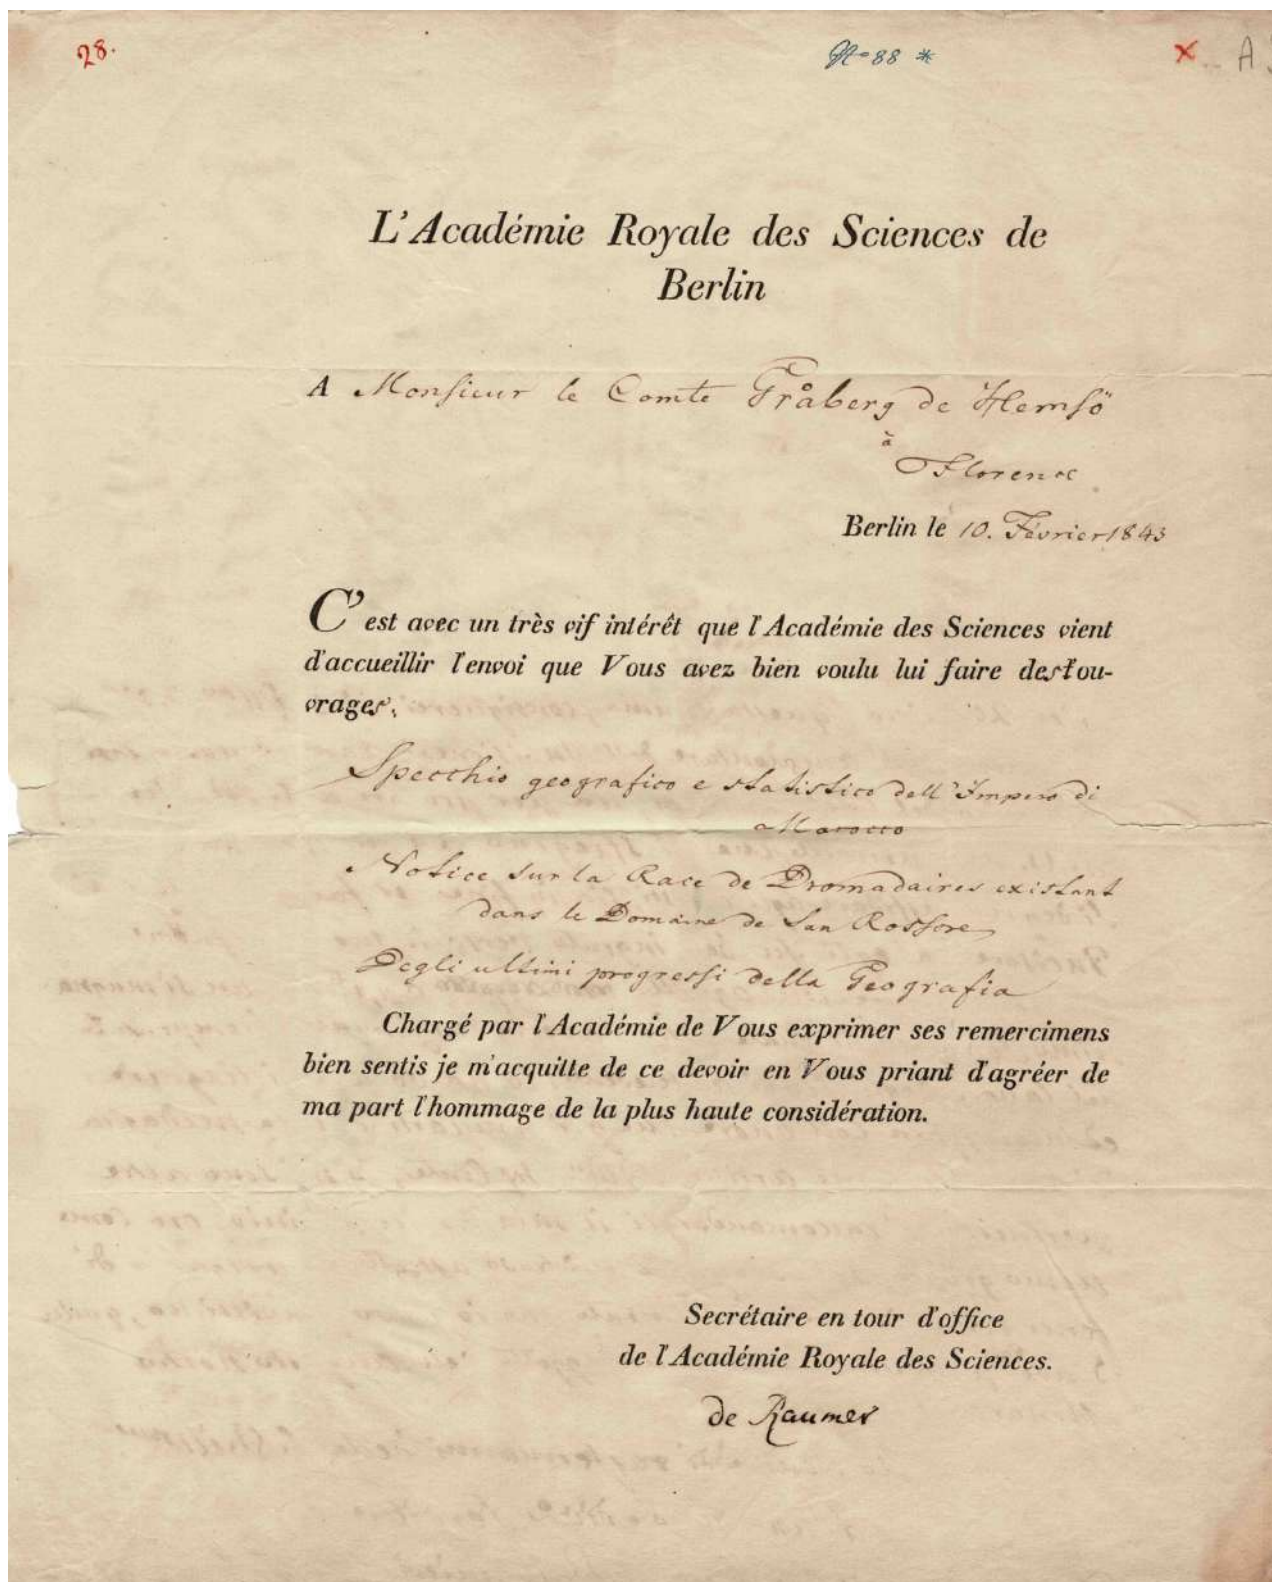 28.
N=88 *
x A
L'Académie Royale des Sciences de
Berlin
A Monsieur le Comte Gråberg de Hemsö
à
Florence
Berlin le 10. Février 1843
C'est avec un très vif intérêt que l'Académie des Sciences vient
d'accueillir l'envoi que Vous avez bien voulu lui faire des ou-
vrages,
Specchio geografico e statistico dell'Impero di
Marocco
Notice sur la Race de Dromadaires existant
dans le Domaine de San Rossore
Degli ultimi progressi della Geografia
Chargé par l'Académie de Vous exprimer ses remercimens
bien sentis je m'acquitte de ce devoir en Vous priant d'agréer de
ma part l'hommage de la plus haute considération.
Secrétaire en tour d'office
de l'Académie Royale des Sciences.
de Raumer